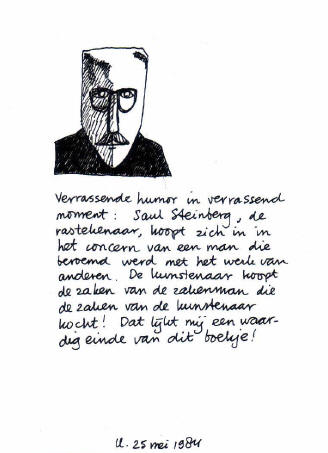 Verrassende humor in verrassend
moment: Saul Steinberg, de
rastekenaar, koopt zich in in
het concern van een man die
beroemd werd met het werk van
anderen. De kunstenaar koopt
de zaken van de zakenman die
de zaken van de kunstenaar
kocht! Dat lijkt mij een waar-
dig einde van dit boekje!
U. 25 mei 1984